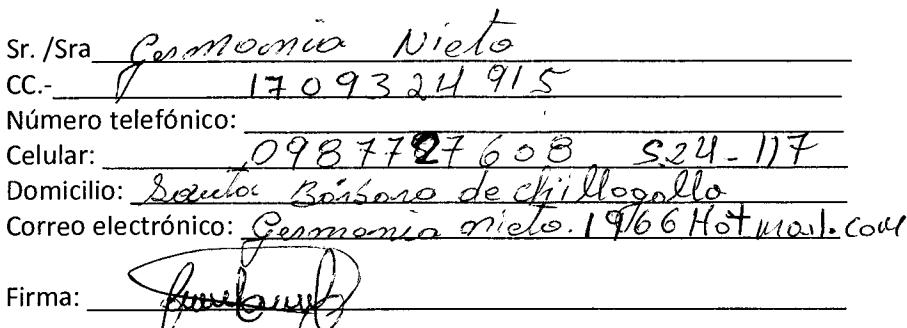 Sr. /Sra Germania Nieto
CC.- 1709324915
Número telefónico:
Celular: 0987727608 S24-117
Domicilio: Santa Bárbara de chillogallo
Correo electrónico: Germania nieto.1966 Hotmail.com
Firma: